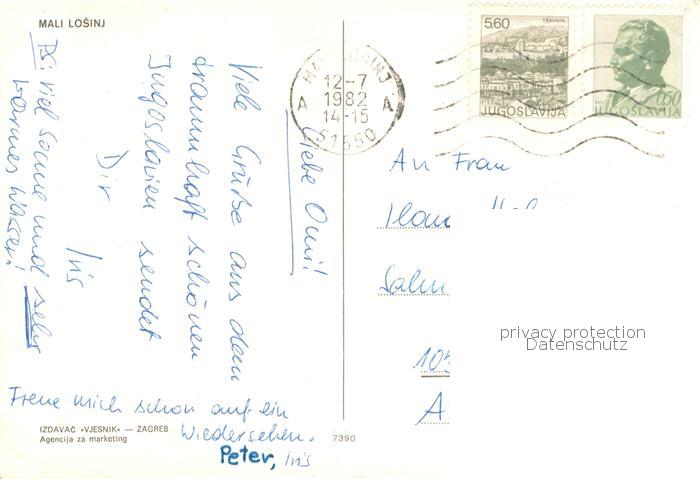 MALI LOŠINJ
Liebe Omi!
Viele Grüße aus dem
traumhaft schönen
Jugoslavien sendet
Dir Iris
PS: viel Sonne und sehr
warmes Wasser!
Freue mich schon auf ein
Wiedersehen.
Peter, Iris
IZDAVAČ »VJESNIK« — ZAGREB
Agencija za marketing
7390
MALI LOŠINJ
12-7
1982
14-15
A A
51550
5.60
TRAVNIK
JUGOSLAVIJA
0.50
JUGOSLAVIJA
An Frau
privacy protection
Datenschutz